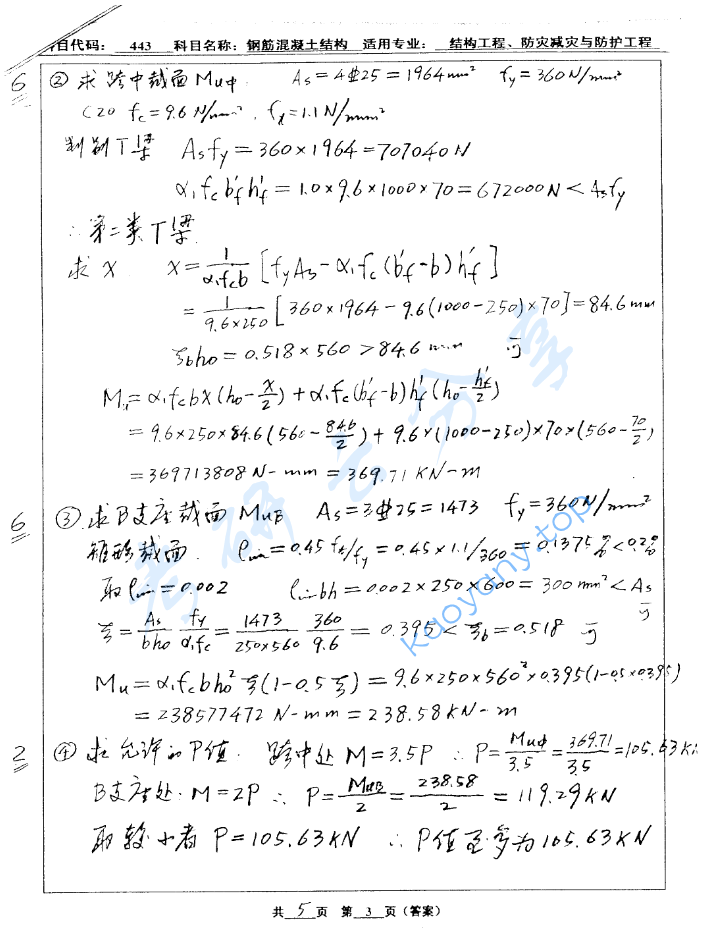 目代码： 443 科目名称：钢筋混凝土结构 适用专业： 结构工程、防灾减灾与防护工程
6 ② 求跨中截面 Mu中 As=4⌀25=1964mm² fy=360N/mm²
C20 fc=9.6N/mm². ft=1.1N/mm²
判别T梁 Asfy=360×1964=707040N
α₁fcb'fh'f=1.0×9.6×1000×70=672000N<Asfy
∴第二类T梁
求x x=1/α₁fcb[fyAs-α₁fc(b'f-b)h'f]
=1/9.6×250[360×1964-9.6(1000-250)×70]=84.6mm
ξbh₀=0.518×560>84.6mm 可
Mu=α₁fcbx(h₀-x/2)+α₁fc(b'f-b)h'f(h₀-h'f/2)
=9.6×250×84.6(560-84.6/2)+9.6×(1000-250)×70×(560-70/2)
=369713808N-mm=369.71KN-m
6 ③ 求B支座截面MuB As=3⌀25=1473 fy=360N/mm²
矩形截面. ρmin=0.45ft/fy=0.45×1.1/360=0.1375%<0.2%
取ρmin=0.002 ρminbh=0.002×250×600=300mm²<As 可
ξ=As/bh₀ fy/α₁fc=1473/250×560 360/9.6=0.395<ξb=0.518 可
Mu=α₁fcbh₀²ξ(1-0.5ξ)=9.6×250×560²×0.395(1-0.5×0.395)
=238577472N-mm=238.58KN-m
2 ④ 求允许的P值. 跨中处M=3.5P ∴P=Mu中/3.5=369.71/3.5=105.63KN
B支座处:M=2P ∴P=MuB/2=238.58/2=119.29KN
取较小者P=105.63KN ∴P值至多为105.63KN
考研共享
kaoyany.top
共 5 页 第 3 页（答案）